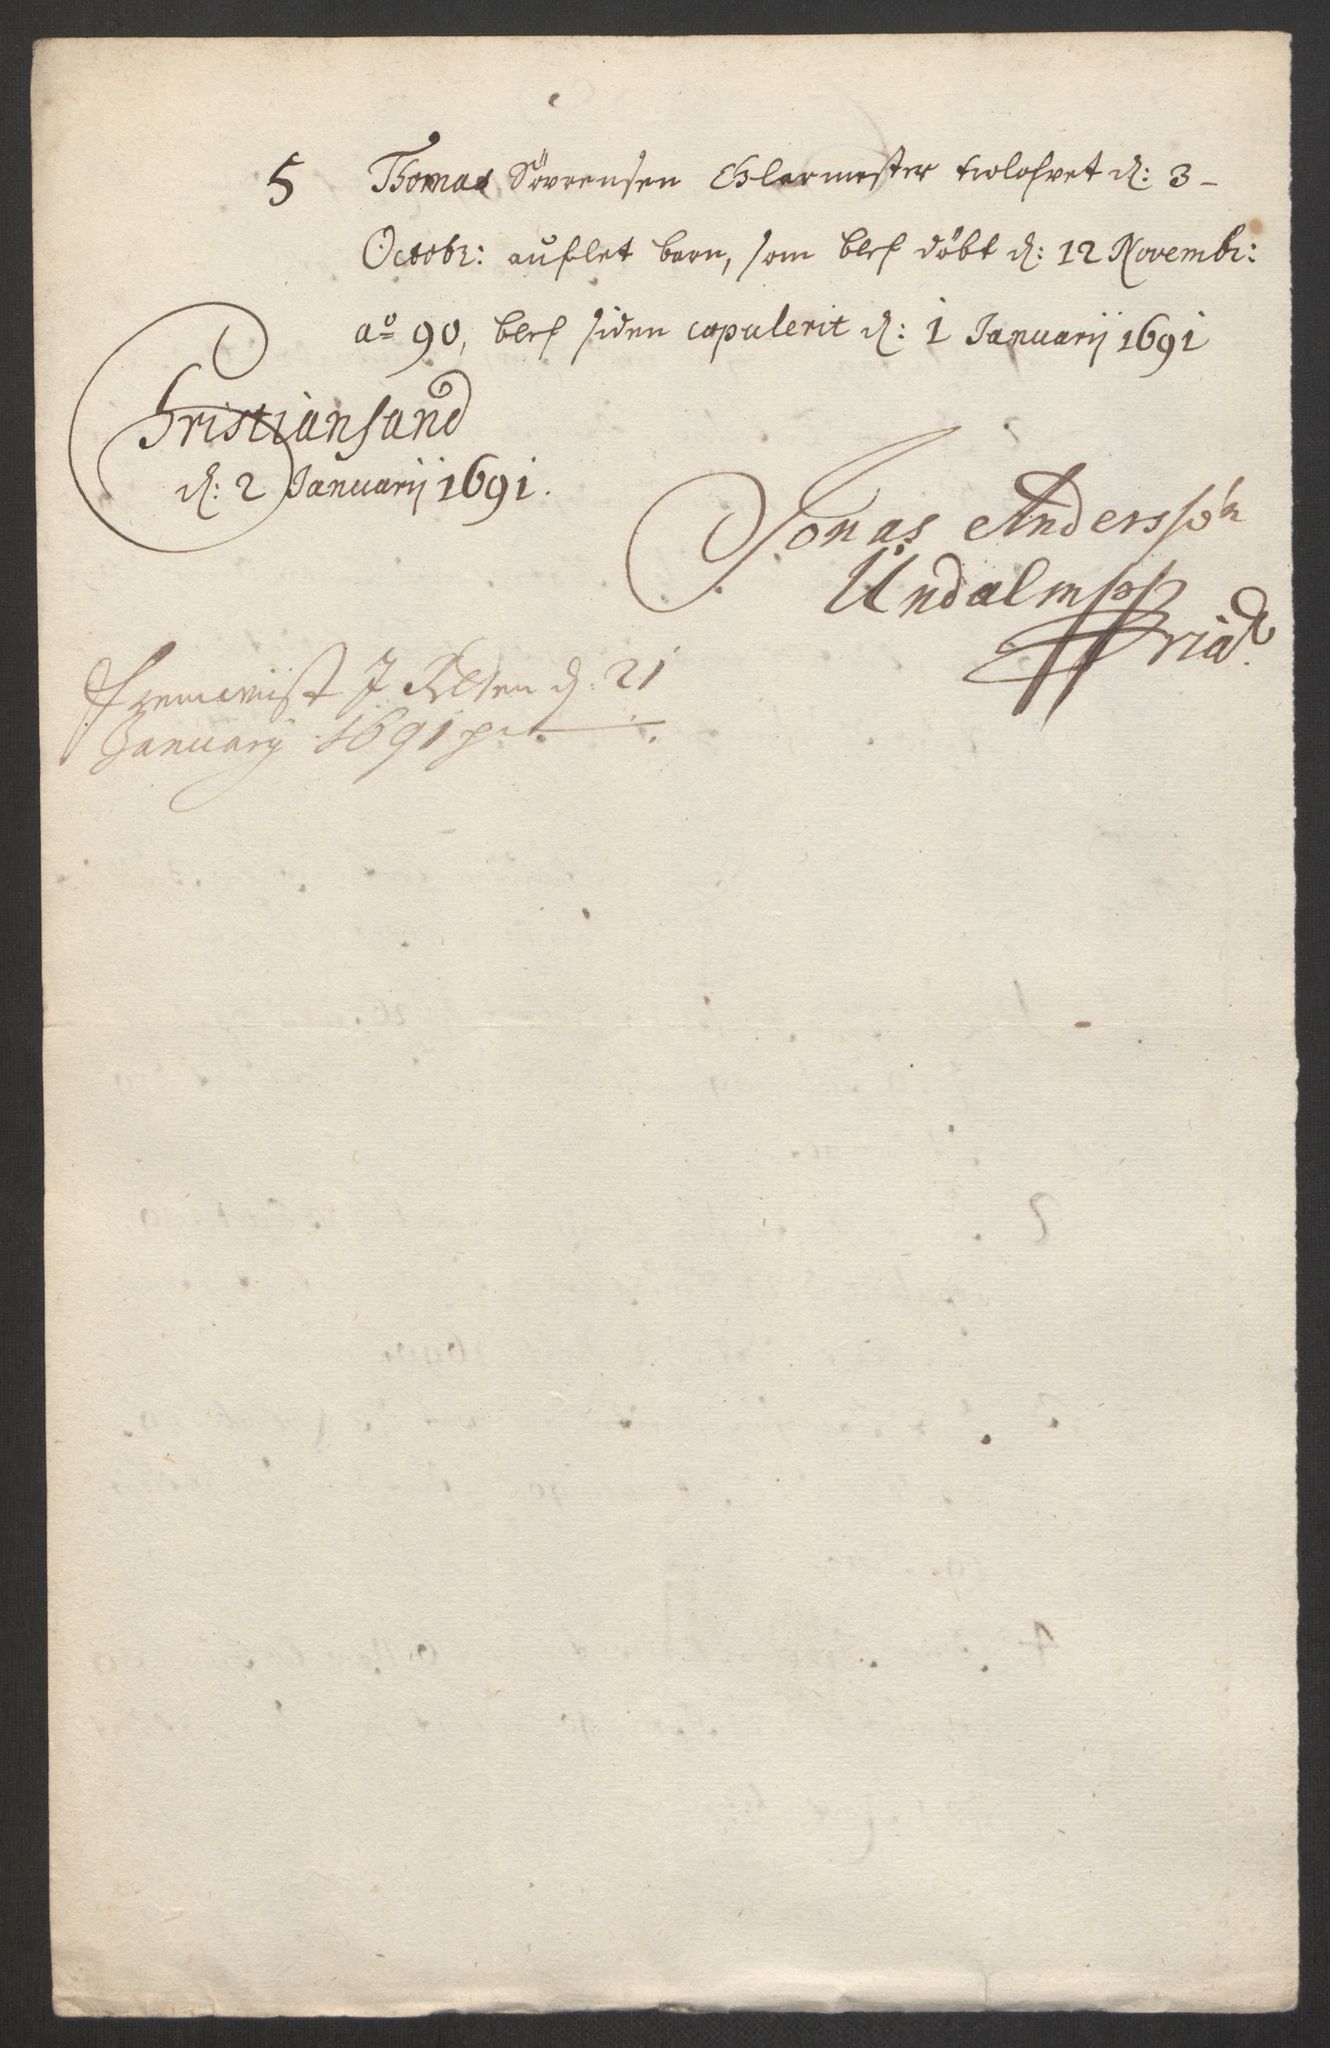 5 Thomas Sövrensen Glarmester trolofvet d: 3 -
Octobr: auflet barn, som blef döbt d: 12 Novembr:
ao 90, blef siden copulerit d: 1 Januarij 1691
Christiansand
d: 2 Januarij 1691.
Jonas Anderssøn
Undal mpp
Fremviist I Retten d: 21
January 1691